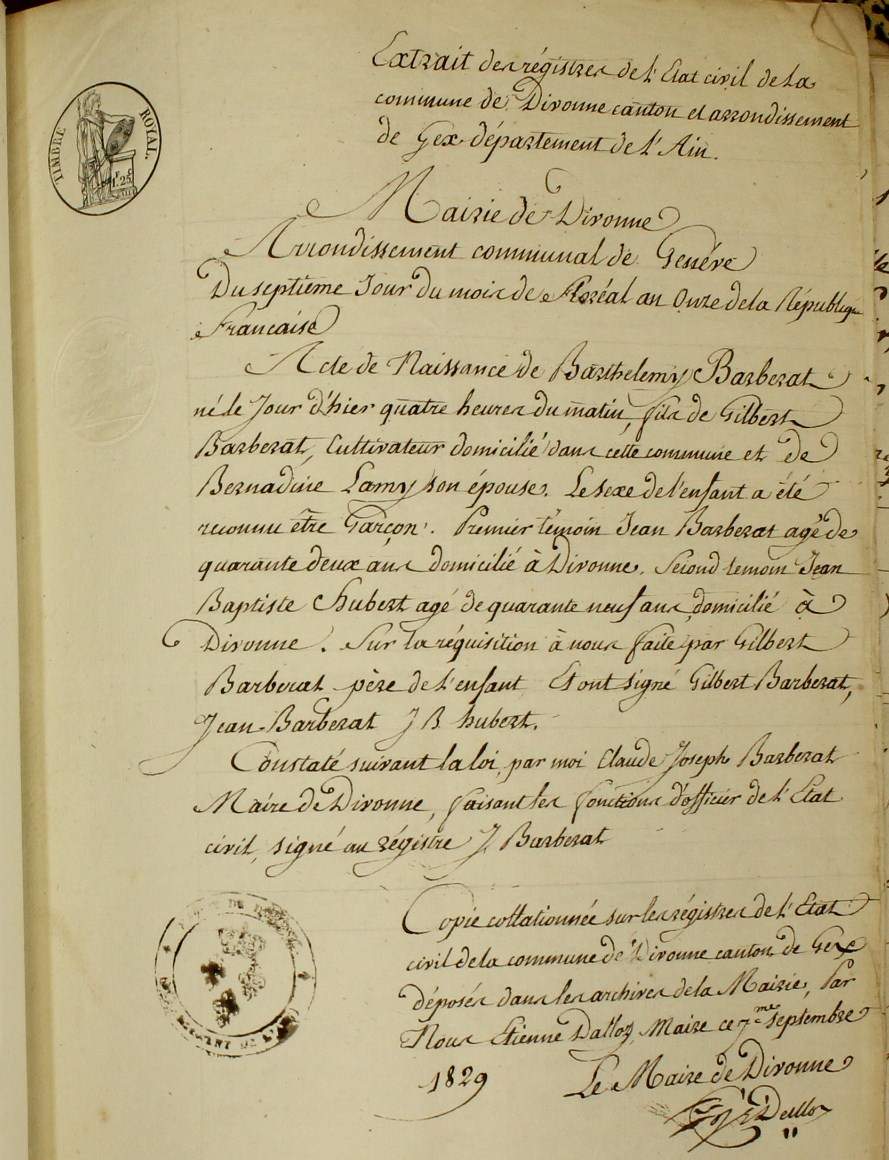 TIMBRE ROYAL.
1.F 25.C
Extrait des régistres de l'Etat civil de la
commune de Divonne canton et arrondissement
de Gex département de l'Ain.
Mairie de Divonne
Arrondissement communal de Genéve
Du septieme Jour du mois de Floréal an Onze de la République
Francaise
Acte de Naissance de Barthelemy Barberat
né le Jour d'hier quatre heures du matin, fils de Gilbert
Barberat, Cultivateur domicilié dans cette commune et de
Bernadine Lamy son épouse. Le sexe de l'enfant a été
reconnu être Garçon. Premier témoin Jean Barberat agé de
quarante deux ans domicilié à Divonne. Second temoin Jean
Baptiste hubert agé de quarante neuf ans domicilié à
Divonne. Sur la réquisition à nous faite par Gilbert
Barberat père de l'enfant Et ont signé Gilbert Barberat,
Jean Barberat J B hubert.
Constaté suivant la loi, par moi Claude Joseph Barberat
Maire de Divonne, faisant les fonctions d'officier de l'Etat
civil, signé au régistre J. Barberat
Copie collationnée sur les régistres de l'Etat
civil de la commune de Divonne canton de Gex
déposés dans les archives de la Mairie, Par
Nous Etienne Dalloz, Maire ce 7me septembre
1829
Le Maire de Divonne
Dalloz